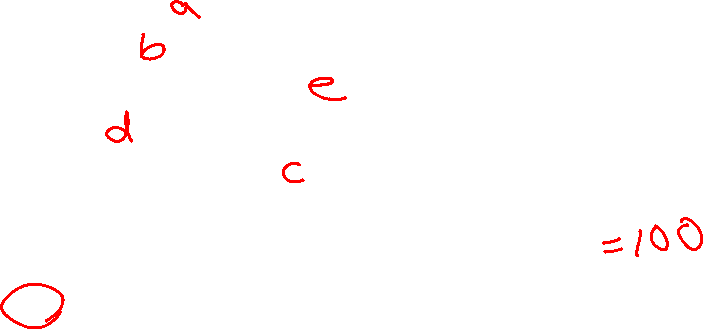 a
b
e
d
c
=100